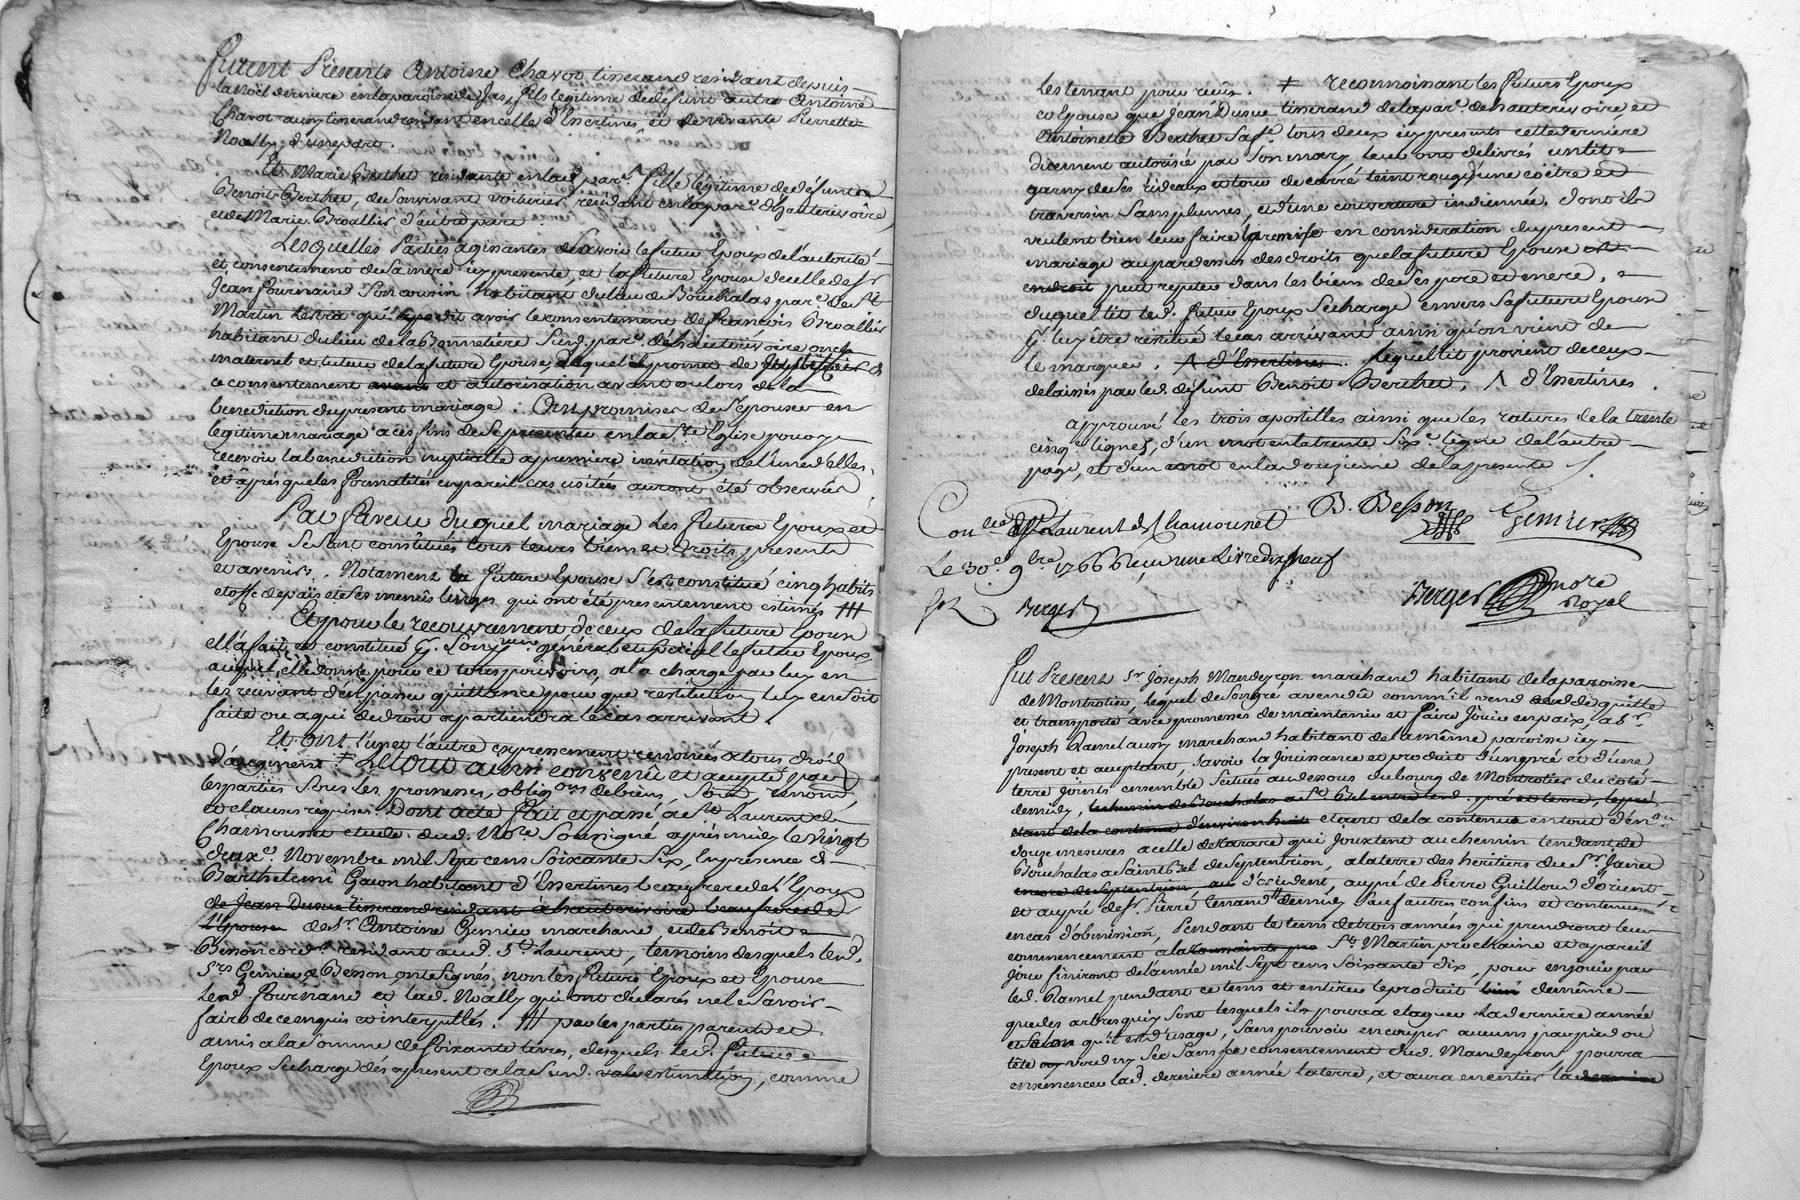 furent Présents Antoine Chavot tisserand residant depuis
la Noël derniere en la paroisse de Jas, fils legitime de défunt autre Antoine
Chavot aussy tisserand residant en celle d'Essertines et de vivante Pierrette
Noally d'une part.
Et Marie Berthet residante en lad. par.e fille legitime de défunt
Benoit Berthet, de son vivant voiturier residant en la par.e d'hauterivoire
et de Marie Broallier d'eutre part
Lesquelles Parties agissantes sçavoir le futur Epoux de l'autorité
et consentement de sa mere icy presente, et la future Epouse de celle de Sr
Jean fournand son cousin habitant du lieu de Bouchalas par.e de St
Martin Lestra qui a dit avoir le consentement de francois Broallier
habitant du lieu de la Bonnetiere susd. par.e de hauterivoire oncle
maternel et tuteur de la future Epouse, duquel il promet de
ce consentement et autorisation avant ou lors de la
benediction du present mariage : Ont promis de s'Epouser en
legitime mariage a ces fins de se presenter en la Ste Eglise pour y
recevoir la benediction nuptialle a premiere invitation de l'une d'elles,
et après que les formalités en pareil cas usitées auront été observées
Par faveur duquel mariage les futurs Epoux et
Epouse se sont constitués tous leurs biens et droits presents
et avenirs. Notament la future Epouse s'est constitué cinq habits
etoffe de païs et ses menus linges qui ont été presentement estimés ///
Et pour le recouvrement de ceux de la future Epouse
ell'a fait et constitué pr. son general et special le futur Epoux,
auquel elle donne pour ce tous pouvoirs, a la charge par luy en
les recevant d'en passer quittance pour que restitution luy en soit
faite ou a qui de droit apartiendra le cas arrivant.
Et ont l'un et l'autre expressement renoncés a tous droit
d'augment ‡ Le tout ainsi convenu et accepté par
les parties sous les promesses, oblig.ons de biens, soum, renonc,
et clauses requises. Dont acte fait et passé a St Laurent de
Chamousset etude dud. No.re soussigné après midy le vingt
deux.e Novembre mil sept cens soixante six, En presence de
Barthelemi Gacon habitant d'Essertines beaufrere de l'Epoux
de Jean Dusuc tisserand residant à hauterivoire beaufrere de
l'Epouse de Sr. Antoine Genier marchand et de Benoit
Besson cord.r residant aud. St. Laurent, temoins desquels lesd.
Srs Genier & Besson ont signés, non les futurs Epoux et Epouse
led. fournand et lad. Noally qui ont déclarés ne le savoir
faire de ce enquis et interpellés. /// par les parties parents et
amis a la somme de soixante livres, desquels led. futur
Epoux se charge dés apresent a la susd. estimation, comme
les tenant pour reçus. ‡ reconnoissant les futurs Epoux
et Epouse que Jean Dusuc tisserand de la par.e de hauterivoire, et
Antoinette Berthet sa fe. tous deux icy presents cette derniere
düement autorisée par son mary, leur ont délivrés un lit
garny de ses rideaux et tour de carré teint rouge, une coëtre et
traversin sans plumes, et d'une couverture indiennée, dont ils
veulent bien leur faire la remise en consideration du present
mariage au par dessus des droits que la future Epouse
peut repeter dans les biens de ses pere et mere,
duquel lit led. futur Epoux se charge envers sa future Epouse
p. luy être restitué le cas arrivant ainsi qu'on vient de
le marquer. ∧ d'Essertines lequel lit provient de ceux
delaissés par led. défunt Benoit Berthet, ∧ d'Essertines.
approuvé les trois apostilles ainsi que les ratures de la trente
cinq.e ligne, d'un mot en la trente six.e ligne de l'autre
page, et d'un mot en la douzieme de la presente
B. Besson Genier
Con.llé St Laurent de Chamousset
Le 30.e 9bre. 1766 Reçu une livre dix neuf
Berger
Berger no.re Royal
fut Present Sr Joseph Mandeyron marchand habitant de la paroisse
de Montrotier, lequel de son gré a vendu comm'il vend cede quitte
et transporte avec promesses de maintenir et faire jouir en paix, a Sr.
Joseph Ramel aussy marchand habitant de la même paroisse icy
present et acceptant, savoir la jouissance et produit d'un pré et d'une
terre joints ensemble, situés au dessous du bourg de Montrotier du coté
de midy, le chemin de Bouchalas a St Bel entre led. pré et terre, le pré
etant de la contenue d'environ huit et de la contenue en tout d'en.on
douze mesures a celle de tarare qui jouxtent au chemin tendant de
Bouchalas a Saint Bel de Septentrion, a la terre des heritiers du Sr. Janet
encore de Septentrion, d'occident, au pré de Pierre Guilloud d'orient
et au pré de Sr. Pierre terrand de midy sauf autres confins et contenues
en cas d'obmission, Pendant le tems de trois années qui prendront leur
commencement a la St. Martin prochaine et a pareil
jour finiront de l'année mil sept cens soixante dix, pour en jouir par
led. Ramel pendant ce tems et en tirer le produit de même
que des arbres qui y sont lesquels il pourra elaguer la derniere année
et selon qu'il est d'usage, sans pouvoir en couper aucuns par pied ou
tête sec sans le consentement dud. Mandeyron, pourra
ensemencer lad. derniere année la terre, et aura en entier la